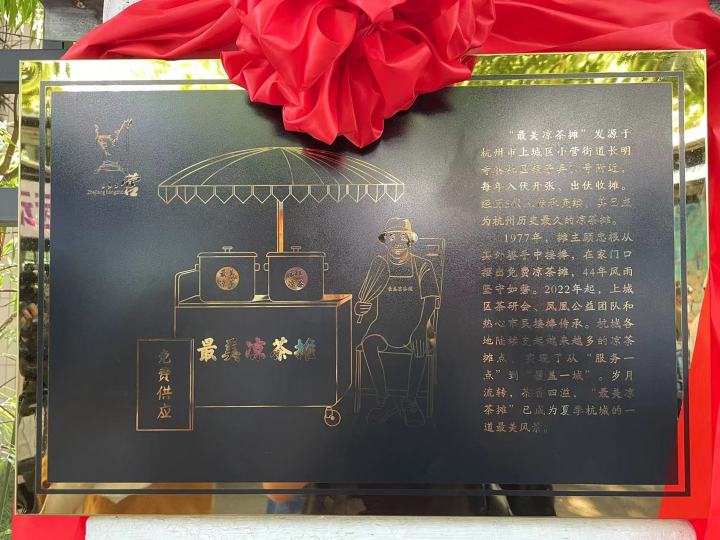 Zhejiang Hangzhou
最美
凉茶
凉茶
最美凉茶摊
最美凉茶摊
免费供应
“最美凉茶摊”发源于
杭州市上城区小营街道长明
寺巷社区
号附近,
每年入伏开张、出伏收摊。
已成
为杭州历史最久的凉茶摊。
1977年,摊主顾忠根从
其外婆手中接棒,在家门口
摆出免费凉茶摊,44年风雨
坚守如磐。2022年起,上城
区茶研会、凤凰公益团队和
热心市民接棒传承。杭城各
地陆续支起越来越多的凉茶
摊点,实现了从“服务一
点”到“覆盖一城”。岁月
流转,茶香四溢,“最美凉
茶摊”已成为夏季杭城的一
道最美风景。